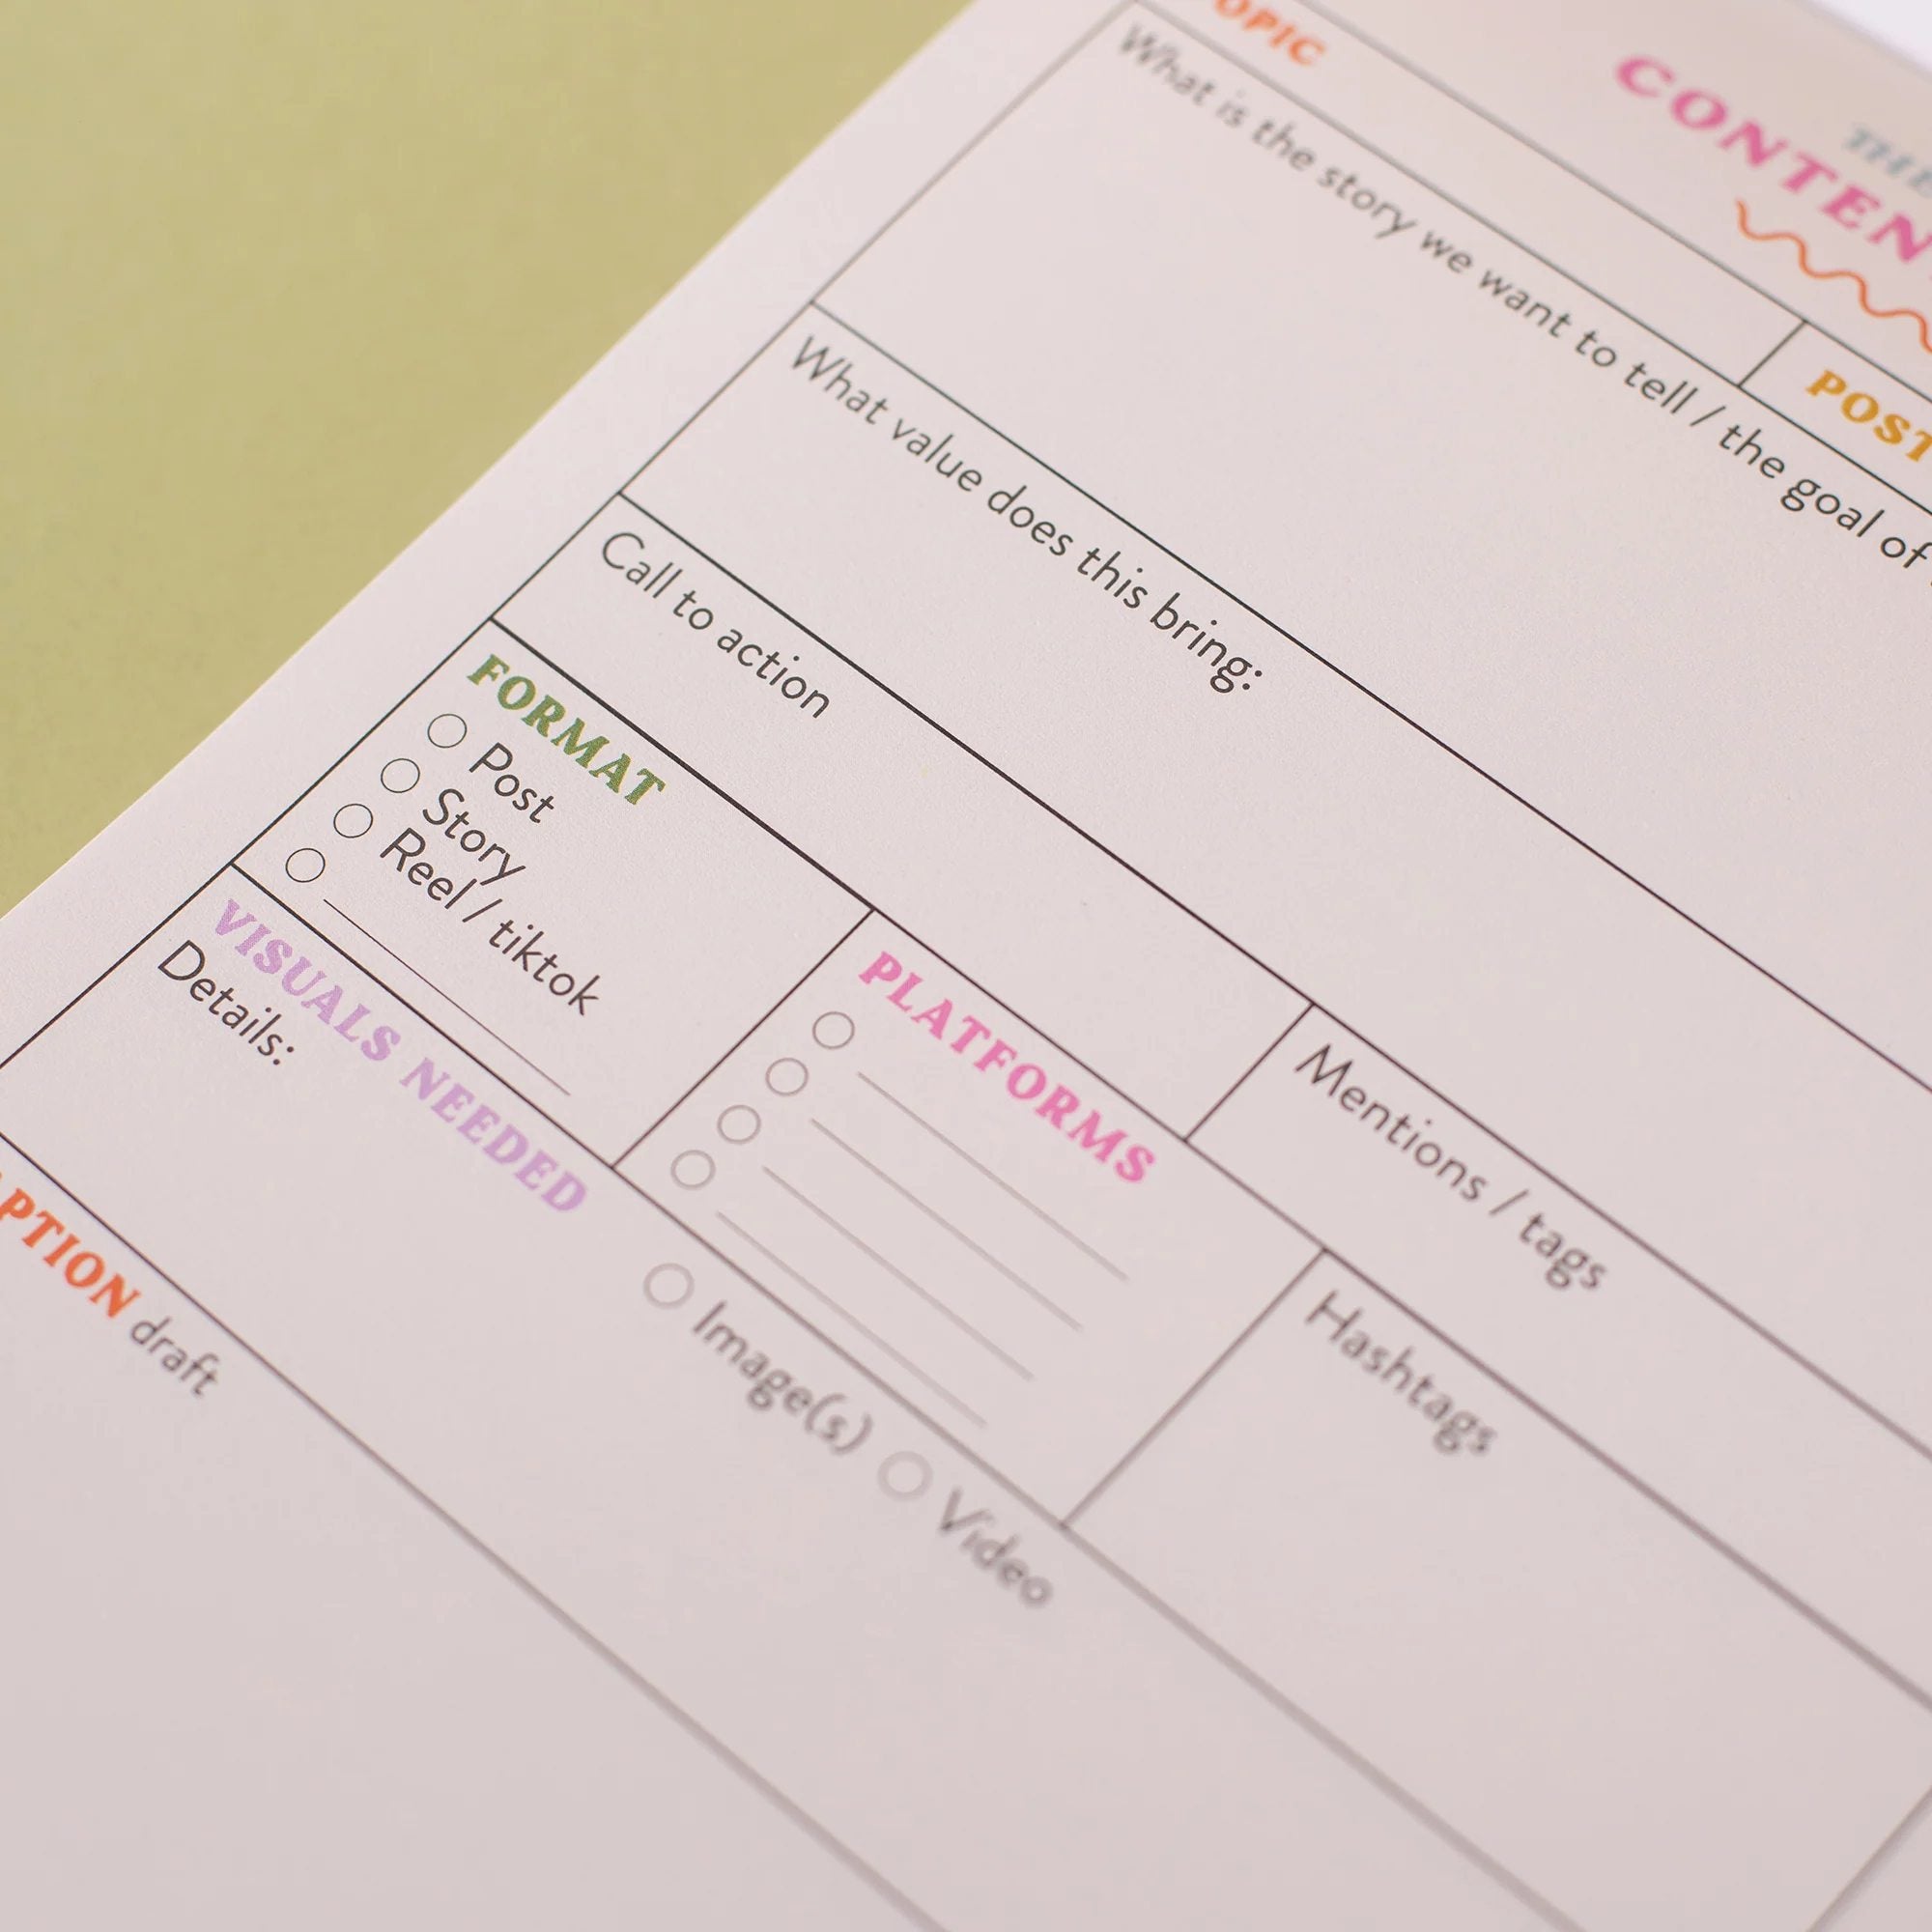 THE
CONTEN
OPIC
POST
What is the story we want to tell / the goal of
What value does this bring:
Call to action
Mentions / tags
FORMAT
Post
Story
Reel / tiktok
PLATFORMS
Hashtags
VISUALS NEEDED
Image(s)
Video
Details:
PTION draft